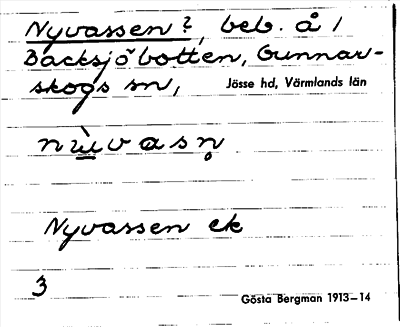 Nyvassen?, beb. å /
Backsjöbotten, Gunnar-
skogs sn, Jösse hd, Värmlands län
nùvasn̥
Nyvassen ek
3
Gösta Bergman 1913–14